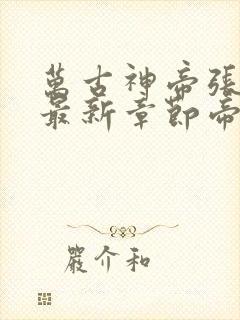 萬古神帝張
最新章節帝
嚴介和